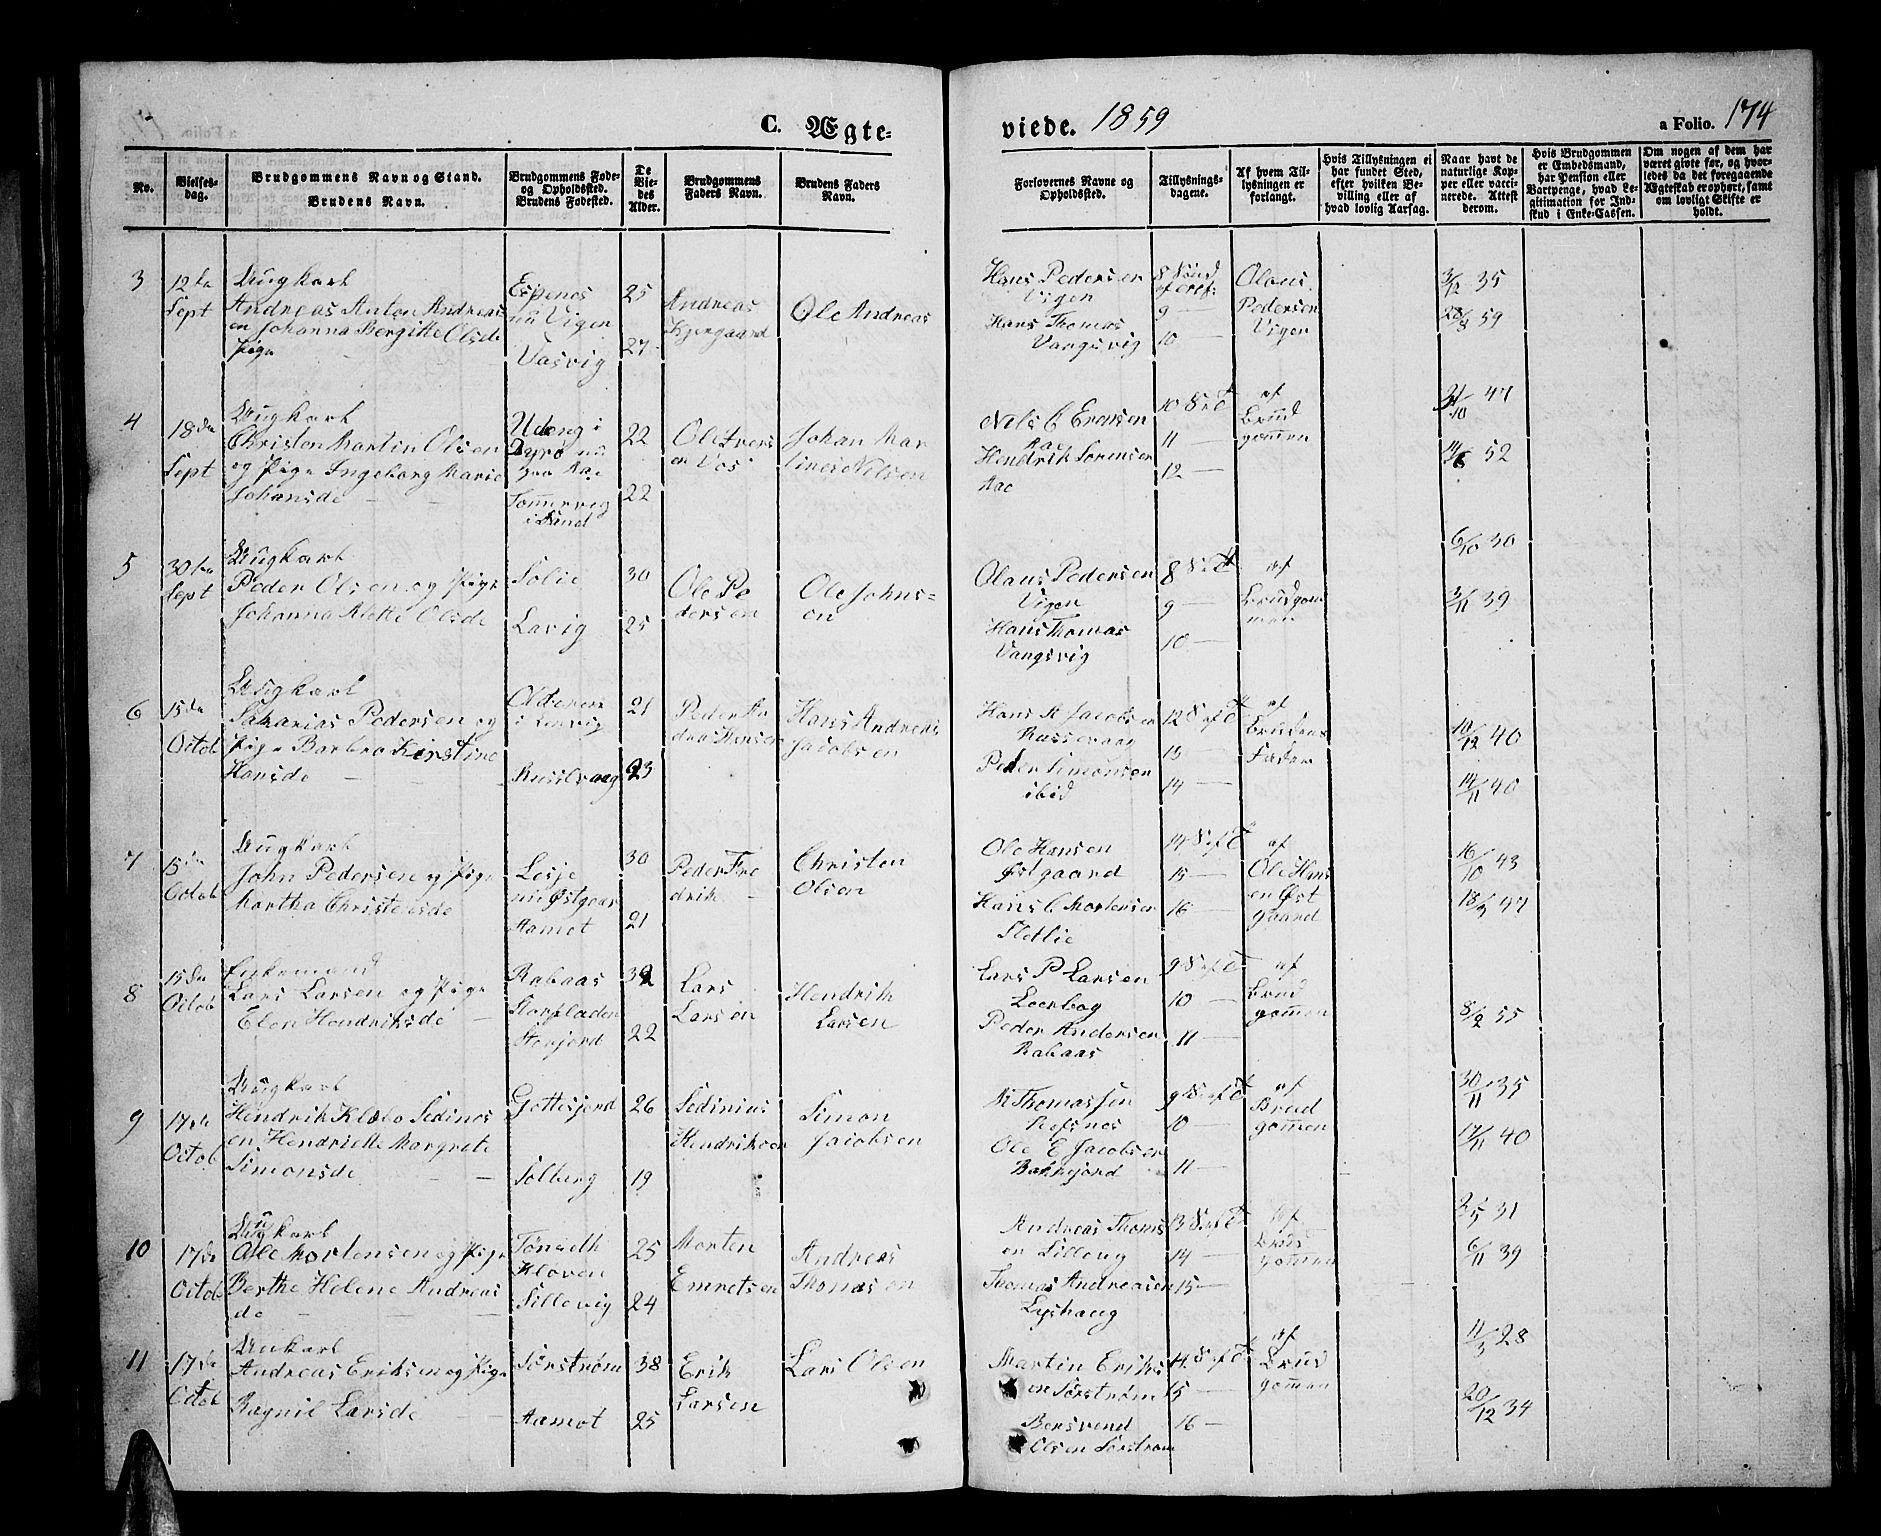 C. Ægte-
viede. 1859
a Folio. 174
No.
Vielses-
dag.
Brudgommens Navn og Stand.
Brudens Navn.
Brudgommens Føde-
og Opholdsted.
Brudens Fødested.
De
Vie-
des
Alder.
Brudgommens
Faders Navn.
Brudens Faders
Navn.
Forlovernes Navne og
Opholdsted.
Tillysnings-
dagene.
Af hvem Til-
lysningen er
forlangt.
Hvis Tillysningen ei
har fundet Sted,
efter hvilken Be-
villing eller af
hvad lovlig Aarsag.
Naar havt de
naturlige Kop-
per eller vacci-
nerede. Attest
derom.
Hvis Brudgommen
er Embedsmand,
har Pension eller
Vartpenge, hvad Le-
gitimation for Ind-
skud i Enke-Cassen.
Om nogen af dem har
været givte før, og hvor-
ledes da det foregaaende
Ægteskab er ophørt, samt
om lovligt Skifte er
holdt.
3
12te
Sept
Ungkarl
Andreas Anton Andreas
en Johanna Bergitte Olsde
Pige
Espenes
nu Vigen
Vasvig
25
27
Andreas
Kjergaard
Ole Andreas
Hans Pedersen
Vigen
Hans Thomas
Vangsvig
9 —
10 —
Olaus
Pedersen
Vigen
3/12 35
28/8 59
4
18de
Sept
Ungkarl
Christen Martin Olsen
og Pige Ingeborg Marie
Johansde
Tømmervig
i Sand
22
22
Ole Ivers
en Vos
Johan Mar
tines Nilsen
Nils C Erensen
Aae
Hendrik Sørensen
Aae
10 S e T
11 —
12 —
af
Brud
gommen
21/10 47
14/6 52
5
30te
Sept
Ungkarl
Peder Olsen og Pige
Johanna Alette Olsde
Solie
Lavig
30
25
Ole Pe
dersen
Ole Johns=
en
Olaus Pedersen
Vigen
Hans Thomas
Vangsvig
8 S e T
9 —
10 —
af
Brudgom
men
6/10 30
3/11 39
6
15de
Octob
Ungkarl
Sakarias Pedersen og
Pige Barbra Kirstine
Hansde
i Lenvig
21
23
Peder An
dreas Hansen
Hans Andreas
Jacobsen
Hans A Jacobsen
Russevaag
Peder Simonsen
ibid
12 S ef T
13
14 —
af
Brudens
Fader
10/12 40
14/11 40
7
15de
Octob
Ungkarl
John Pedersen og Pige
Martha Christensde
Lesje
nu Østgaar
Aamot
30
21
Peder Fre
drik
Christen
Olsen
Ole Hansen
Østgaard
Hans C Mortensen
Sletlie
14 S ef T
15 —
16 —
af
Ole Hans
en Øst
gaard
16/10 43
18/9 47
8
15de
Octob
Enkemand
Lars Larsen og Pige
Elen Hendriksde
Rabaas
Storsladen
Storjord
32
22
Lars
Larsen
Hendrik
Larsen
Lars P Larsen
Leerbog
Peder Andersen
Rabaas
9 S ef T
10 —
11 —
af
Brud
gommen
8/2 55
9
17de
Octob
Ungkarl
Hendrik Klæbo Sedines
en Hendriette Margrete
Simonsde
Gottesjord
Solberg
26
19
Sedinius
Hendriksen
Simon
Jacobsen
N Thomassen
Refsnes
Ole E Jacobsen
Bakkjord
9 S ef T
10 —
11 —
af
Brud
gommen
30/11 35
17/11 40
10
17de
Octob
Ungkarl
Ole Mortensen og Pige
Berthe Helene Andreas
de
Tønseth
Kloven
Sillevig
25
24
Morten
Emretsen
Andreas
Thomasen
Andreas Thoms
en Sillevig
Thomas Andreasen
Lyshaug
13 S ef T
14 —
15 —
af
Brud
gommen
2/5 31
6/11 39
11
17de
Octob
Unkarl
Andreas Eriksen og Pige
Ragnil Larsde
Sørstrøm
Aamot
38
25
Erik
Larsen
Lars Olsen
Martin Eriks
en Sørstrøm
Bersvend
Olsen Sørstrøm
14 S ef T
15 —
16 —
af
Brud
gommen
11/3 28
20/12 34